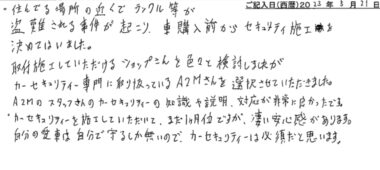 ご記入日(西暦)2013年3月21日
・住んでる場所の近くでラクル等が
盗難される事件が起こり、車購入前からセキュリティ施工を
決めてはいました。
取付施工していただけるショップさんを色々と検討しましたが
カーセキュリティー専門に取り扱っているA2Mさんを選択させていただきました。
A2Mのスタッフさんのカーセキュリティーの知識や説明、対応が非常に良かったです。
・カーセキュリティーを施工していただいて、まだ1ヶ月位ですが、凄い安心感があります。
自分の愛車は自分で守るしか無いので、カーセキュリティーは必須だと思います。